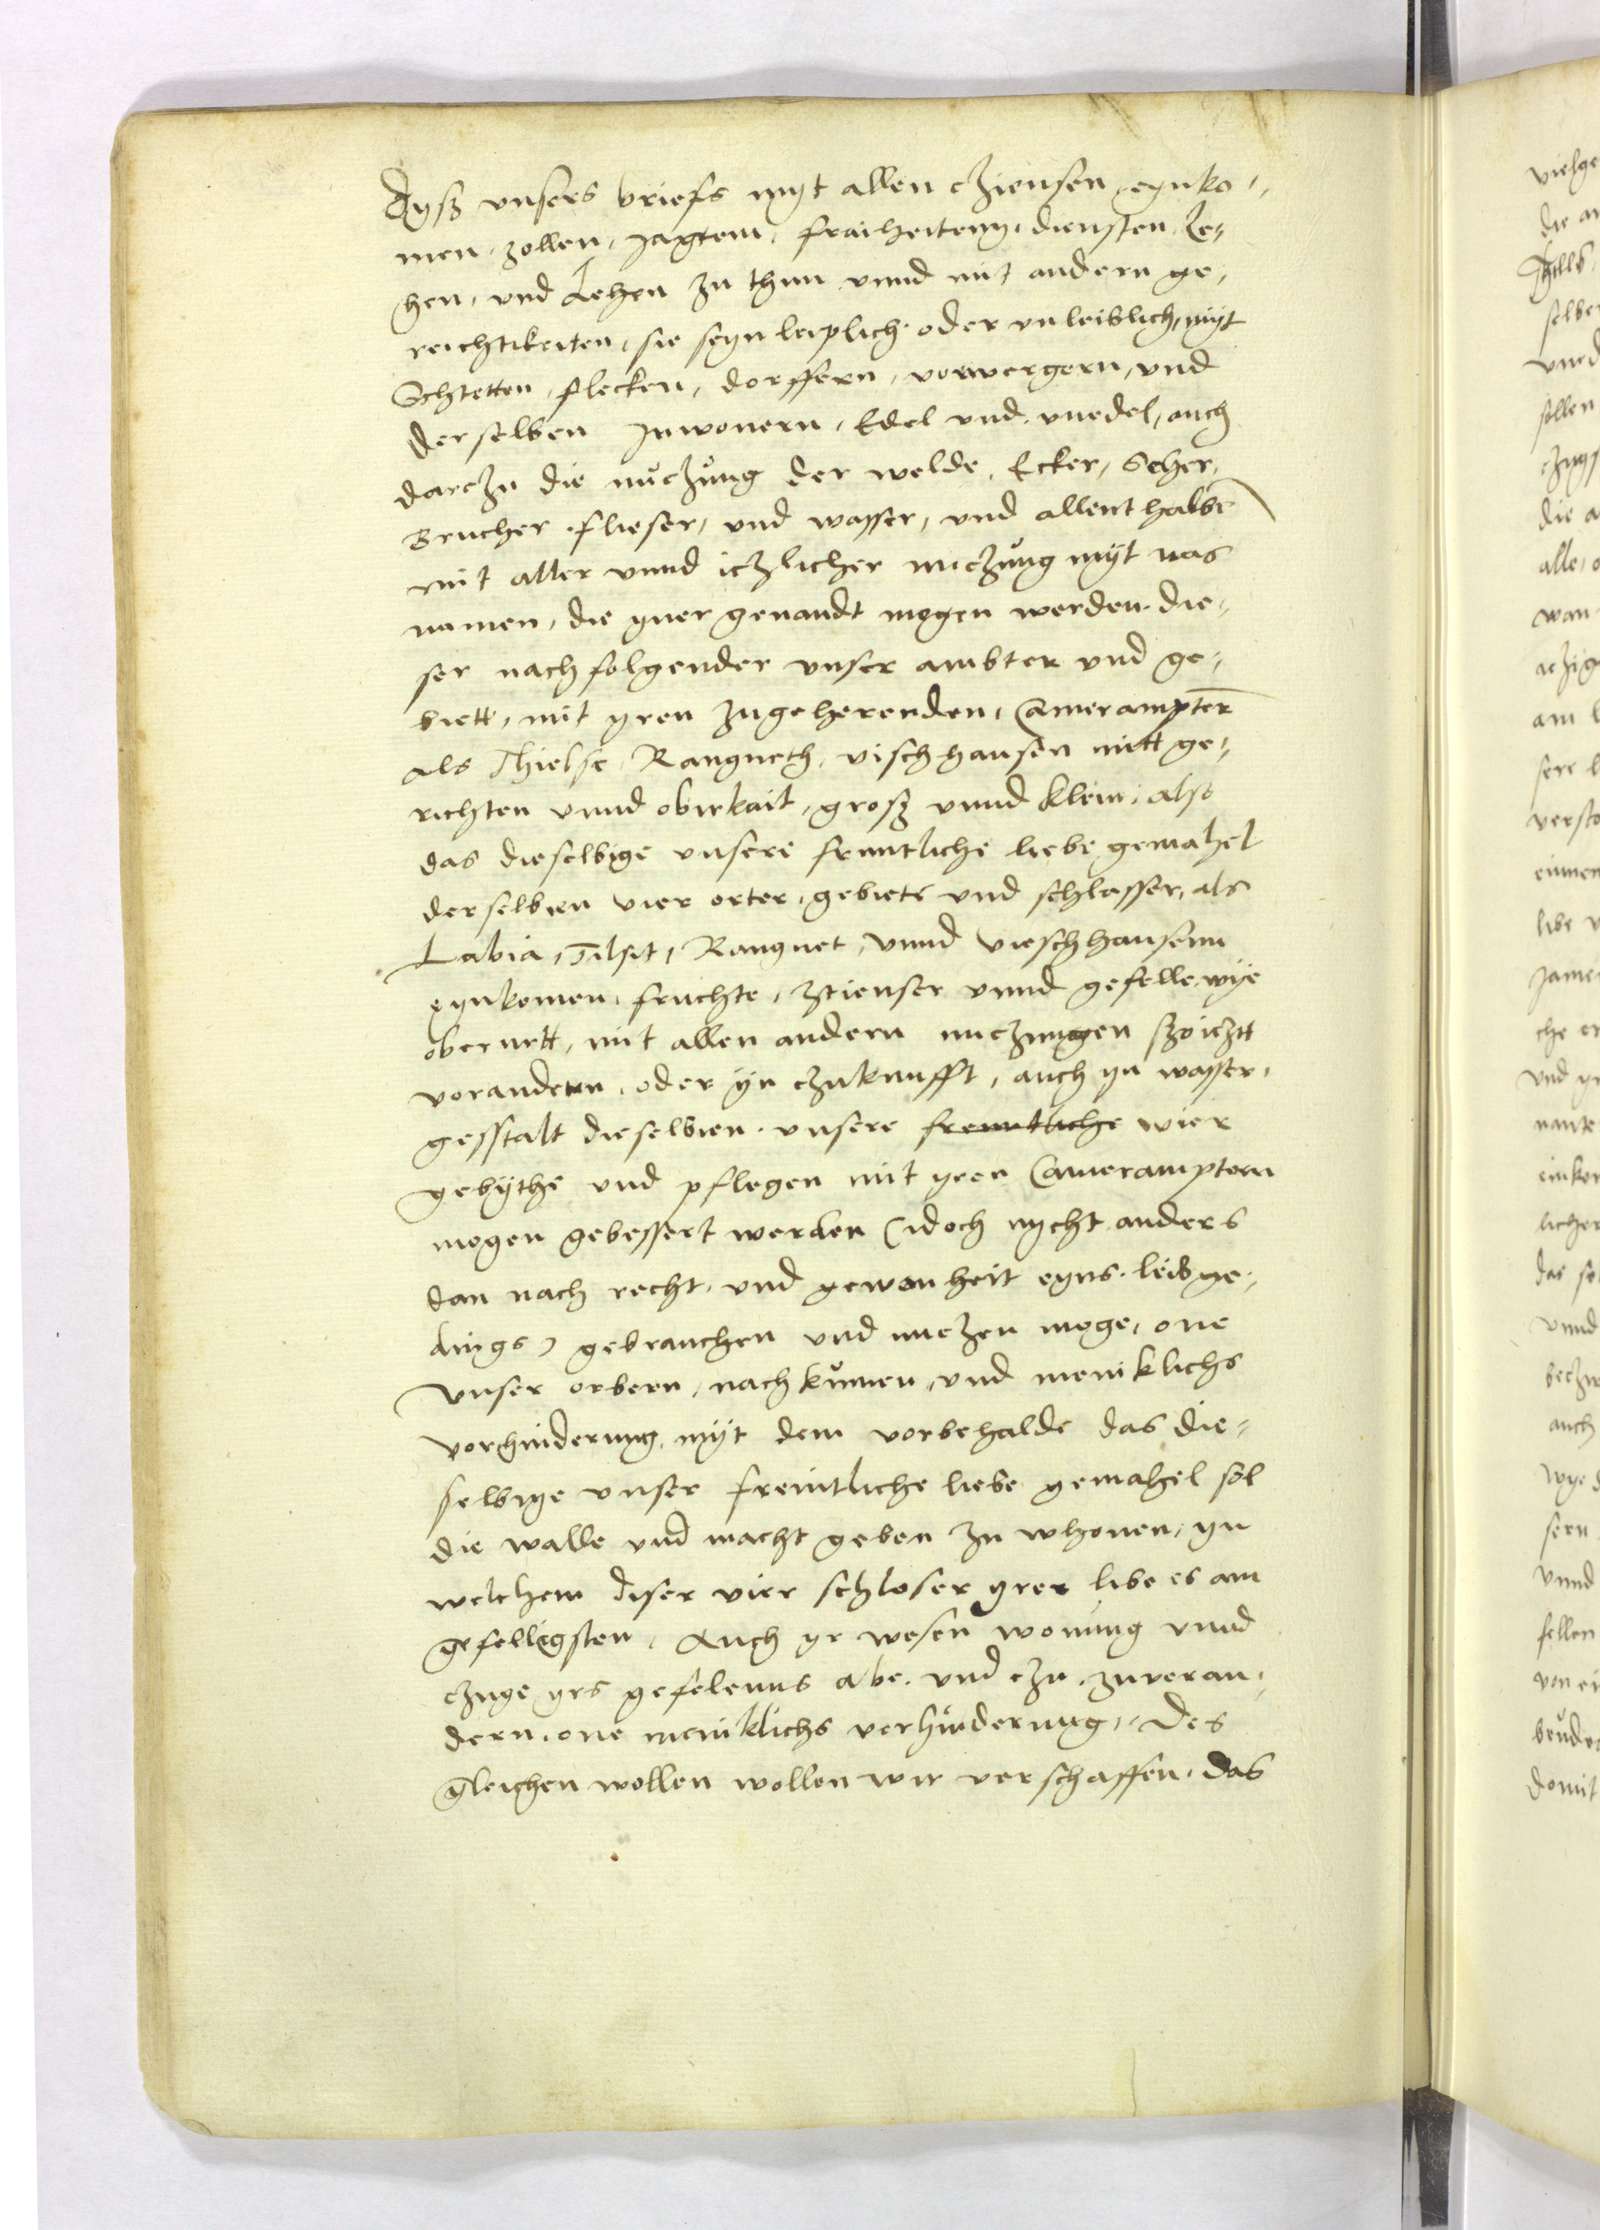 dysz unsers briefs myt allen cziensen, eynko-
men, zollen, jagtenn, fraiheitenn, diensten, ze-
hen, und Lehen zu thun unnd mit andern ge-
reichtikeiten, sie seyn leiplich oder unleiblich, myt
Schtetten, flecken, dorffern, vorwergern, und
derselben Inwonern, Edel und unedel, auch
darczu die nuczung der welde, Ecker, Seher,
Brucher, flieser, und wasser, und allenthalbē
mit aller unnd iczlicher nuczung myt was
namen, die ymer genandt mogen werden, die-
ser nachfolgender unser ambter und ge-
biett, mit yren zugeherenden, Camerampter
als Thielse, Rangneth, vischhausen mitt ge-
richten unnd obirkait, grosz unnd klein, also
das dieselbige unsere fruntliche liebe gemahel
derselbien vier orter, gebiett und schlosser, als
Labia, Tilsit, Rangnet, unnd vieschhausenn
eynkomen, fruchte, zcienser unnd gefelle, wye
oberurtt, mit allen andern nuczungen szo icztt
vorandenn, oder yn czukunfft, auch yn wasser
gesstalt dieselbien unsere freuntliche wier
gebythe und pflegen mit yren Camerampternn
mogen gebessert werden (idoch nycht anders
dan nach recht und gewonheit eyns leibge-
dings) gebrauchen und nuczen moge, one
unser erbenn, nachkumen, und meniklichs
vorhinderung, myt dem vorbehalde das die-
selbige unser freintliche liebe gemahel sol
die walle und macht geben zu whonen, yn
welchem diser vier schloser yrer libe es am
gefelligsten, Auch yr wesen wonung unnd
czuge yrs gefelenns abe und czu zuveran-
dern, one meniklichs verhinderung, Des
gleichen wollen wollen wir verschaffen, das